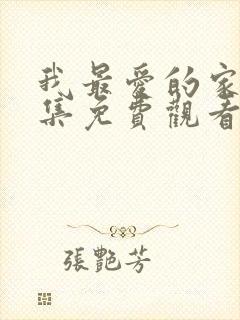 我最愛的家
集免費觀看
張艷芳